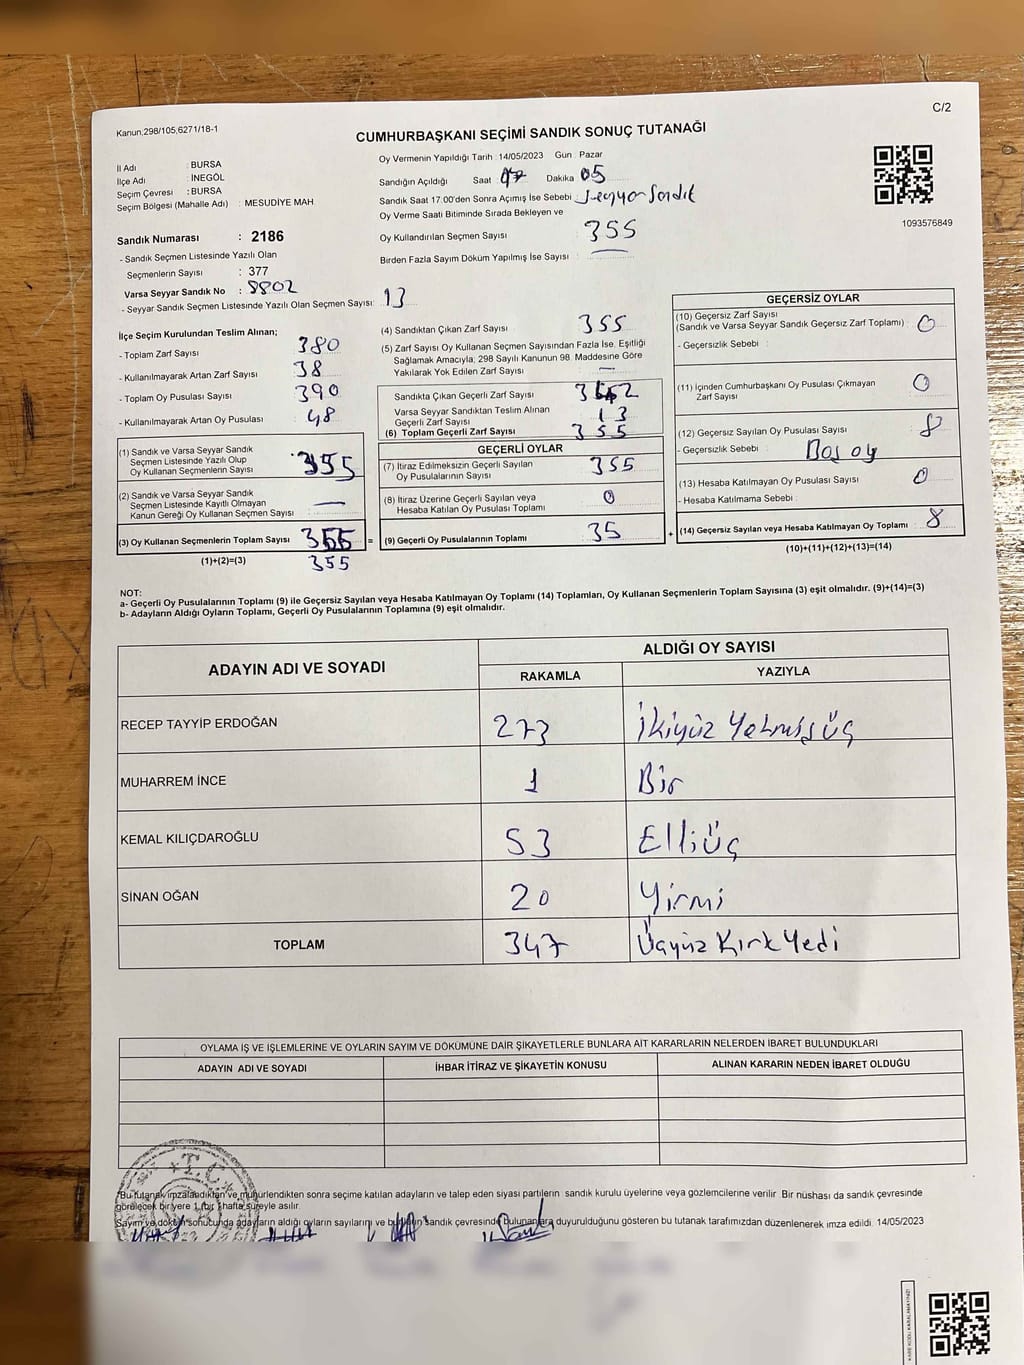 C/2
Kanun,298/105,6271/18-1
CUMHURBAŞKANI SEÇİMİ SANDIK SONUÇ TUTANAĞI
İl Adı : BURSA
İlçe Adı : İNEGÖL
Seçim Çevresi : BURSA
Seçim Bölgesi (Mahalle Adı) : MESUDİYE MAH
Oy Vermenin Yapıldığı Tarih : 14/05/2023 Gün : Pazar
Sandığın Açıldığı Saat Dakika 05
Sandık Saat 17:00'den Sonra Açımış İse Sebebi : Seyyar Sandık
Oy Verme Saati Bitiminde Sırada Bekleyen ve
Oy Kullandırılan Seçmen Sayısı 355
Birden Fazla Sayım Döküm Yapılmış İse Sayısı :
1093576849
Sandık Numarası : 2186
- Sandık Seçmen Listesinde Yazılı Olan
Seçmenlerin Sayısı : 377
Varsa Seyyar Sandık No : 8802
- Seyyar Sandık Seçmen Listesinde Yazılı Olan Seçmen Sayısı: 13
İlçe Seçim Kurulundan Teslim Alınan;
- Toplam Zarf Sayısı 380
- Kullanılmayarak Artan Zarf Sayısı 38
- Toplam Oy Pusulası Sayısı 390
- Kullanılmayarak Artan Oy Pusulası 48
(1) Sandık ve Varsa Seyyar Sandık
Seçmen Listesinde Yazılı Olup
Oy Kullanan Seçmenlerin Sayısı 355
(2) Sandık ve Varsa Seyyar Sandık
Seçmen Listesinde Kayıtlı Olmayan
Kanun Gereği Oy Kullanan Seçmen Sayısı : —
(3) Oy Kullanan Seçmenlerin Toplam Sayısı 355 =
(1)+(2)=(3) 355
(4) Sandıktan Çıkan Zarf Sayısı 355
(5) Zarf Sayısı Oy Kullanan Seçmen Sayısından Fazla İse, Eşitliği
Sağlamak Amacıyla; 298 Sayılı Kanunun 98. Maddesine Göre
Yakılarak Yok Edilen Zarf Sayısı : —
Sandıkta Çıkan Geçerli Zarf Sayısı
Varsa Seyyar Sandıktan Teslim Alınan
Geçerli Zarf Sayısı 13
(6) Toplam Geçerli Zarf Sayısı 355
GEÇERLİ OYLAR
(7) İtiraz Edilmeksizin Geçerli Sayılan
Oy Pusulalarının Sayısı 355
(8) İtiraz Üzerine Geçerli Sayılan veya
Hesaba Katılan Oy Pusulası Toplamı 0
(9) Geçerli Oy Pusulalarının Toplamı 35 +
GEÇERSİZ OYLAR
(10) Geçersiz Zarf Sayısı
(Sandık ve Varsa Seyyar Sandık Geçersiz Zarf Toplamı) : 0
- Geçersizlik Sebebi :
(11) İçinden Cumhurbaşkanı Oy Pusulası Çıkmayan
Zarf Sayısı 0
(12) Geçersiz Sayılan Oy Pusulası Sayısı 8
- Geçersizlik Sebebi : Boş oy
(13) Hesaba Katılmayan Oy Pusulası Sayısı 0
- Hesaba Katılmama Sebebi :
(14) Geçersiz Sayılan veya Hesaba Katılmayan Oy Toplamı : 8
(10)+(11)+(12)+(13)=(14)
NOT:
a- Geçerli Oy Pusulalarının Toplamı (9) ile Geçersiz Sayılan veya Hesaba Katılmayan Oy Toplamı (14) Toplamları, Oy Kullanan Seçmenlerin Toplam Sayısına (3) eşit olmalıdır. (9)+(14)=(3)
b- Adayların Aldığı Oyların Toplamı, Geçerli Oy Pusulalarının Toplamına (9) eşit olmalıdır.
ADAYIN ADI VE SOYADI ALDIĞI OY SAYISI
RAKAMLA YAZIYLA
RECEP TAYYİP ERDOĞAN 273 İkiyüz Yetmişüç
MUHARREM İNCE 1 Bir
KEMAL KILIÇDAROĞLU 53 Elliüç
SİNAN OĞAN 20 Yirmi
TOPLAM 347 Üçyüz Kırk Yedi
OYLAMA İŞ VE İŞLEMLERİNE VE OYLARIN SAYIM VE DÖKÜMÜNE DAİR ŞİKAYETLERLE BUNLARA AİT KARARLARIN NELERDEN İBARET BULUNDUKLARI
ADAYIN ADI VE SOYADI İHBAR İTİRAZ VE ŞİKAYETİN KONUSU ALINAN KARARIN NEDEN İBARET OLDUĞU
T.C.
"Bu tutanak imzalandıktan ve mühürlendikten sonra seçime katılan adayların ve talep eden siyasi partilerin sandık kurulu üyelerine veya gözlemcilerine verilir. Bir nüshası da sandık çevresinde
görülecek bir yere 1 (bir) hafta süreyle asılır.
Sayım ve döküm sonucunda adayların aldığı oyların sayılarını ve bu sandık çevresinde bulunanlara duyurulduğunu gösteren bu tutanak tarafımızdan düzenlenerek imza edildi. 14/05/2023